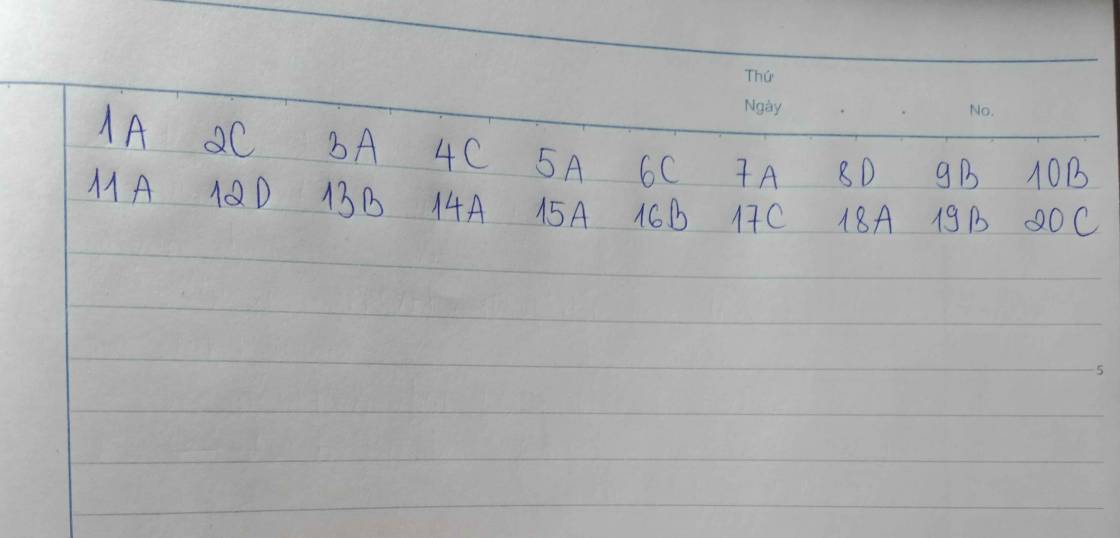 Thứ
Ngày . . No.
1A 2C 3A 4C 5A 6C 7A 8D 9B 10B
11A 12D 13B 14A 15A 16B 17C 18A 19B 20C
5